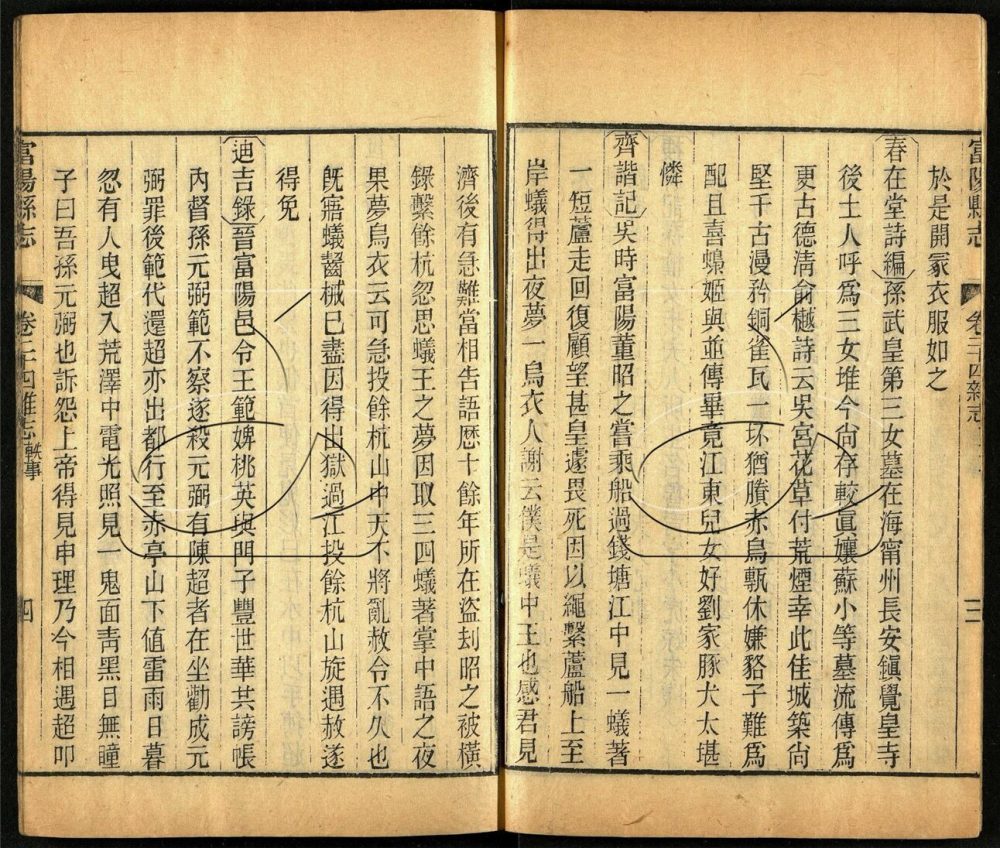 富陽縣志
卷二十四雜志
三
於是開冢衣服如之
春在堂詩編孫武皇第三女墓在海甯州長安鎭覺皇寺
後土人呼爲三女堆今尙存較眞孃蘇小等墓流傳爲
更古德淸俞樾詩云吳宮花草付荒煙幸此佳城築尙
堅千古漫矜銅雀瓦一坏猶賸赤烏甎休嫌貉子難爲
配且喜蟂姬與並傳畢竟江東兒女好劉家豚犬太堪
憐
齊諧記吳時富陽董昭之嘗乘船過錢塘江中見一蟻著
一短蘆走一回復顧望甚皇遽畏死因以繩繫蘆船上至
岸蟻得出夜夢一烏衣人謝云僕是蟻中王也感君見
濟後有急難當相告語歷十餘年所在盜刦昭之被橫
錄繫餘杭忽思蟻王之夢因取三四蟻著掌中語之夜
果夢烏衣云可急投餘杭山中天不將亂赦令不久也
旣寤蟻齧械已盡因得出獄過江投餘杭山旋遇赦遂
得免
迪吉錄晉富陽邑令王範婢桃英與門子豐世華共謗帳
內督孫元弼範不察遂殺元弼有陳超者在坐勸成元
弼罪後範代還超亦出都行至赤亭山下值雷雨日暮
忽有人曳超入荒澤中電光照見一鬼面靑黑目無瞳
子曰吾孫元弼也訴怨上帝得見申理乃今相遇超叩
富陽縣志
卷二十四雜志軼事
四